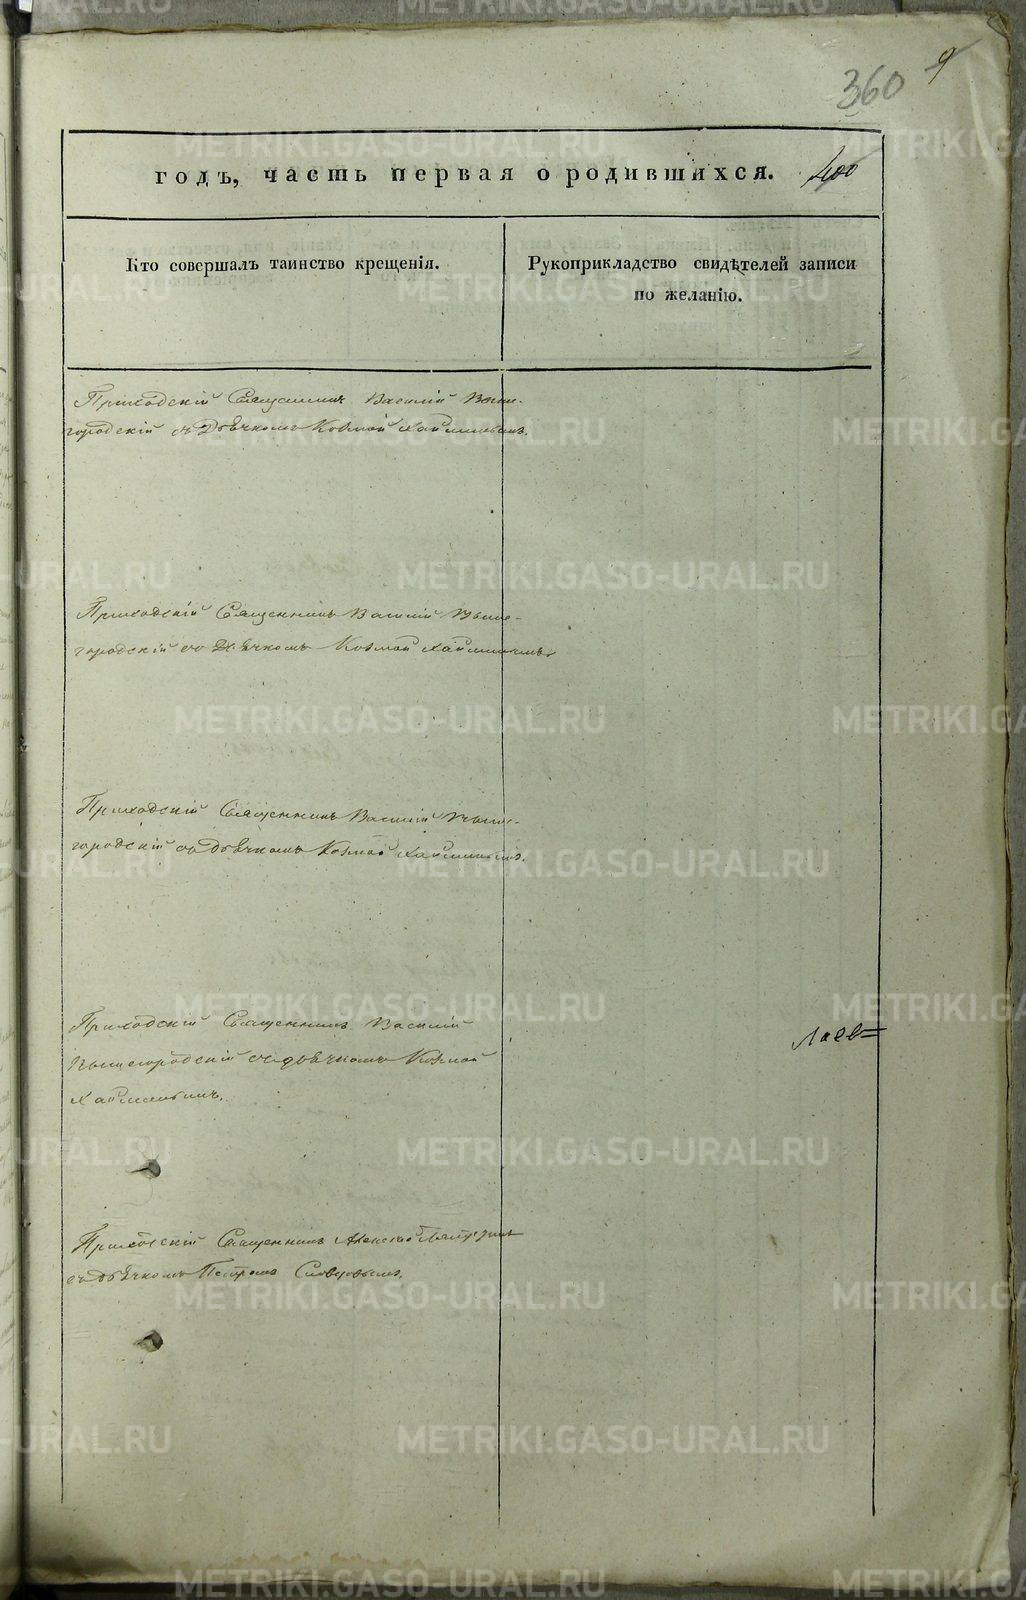 360 9
годъ, часть первая о родившихся. 400
Кто совершалъ таинство крещенія.
Рукоприкладство свидѣтелей записи
по желанію.
Приходскій Священникъ Василій Выше-
городскій съ Дьячкомъ Козмой
Приходскій Священникъ Василій Выше-
городскій со Дьячкомъ Козмой
Приходскій Священникъ Василій Выше-
городскій со дьячкомъ Козмой
Приходскій Священникъ Василій
Вышегородскій съ дьячкомъ Козмой
Приходскій Священникъ Алексѣй
съ дьячкомъ Петромъ
METRIKI.GASO-URAL.RU